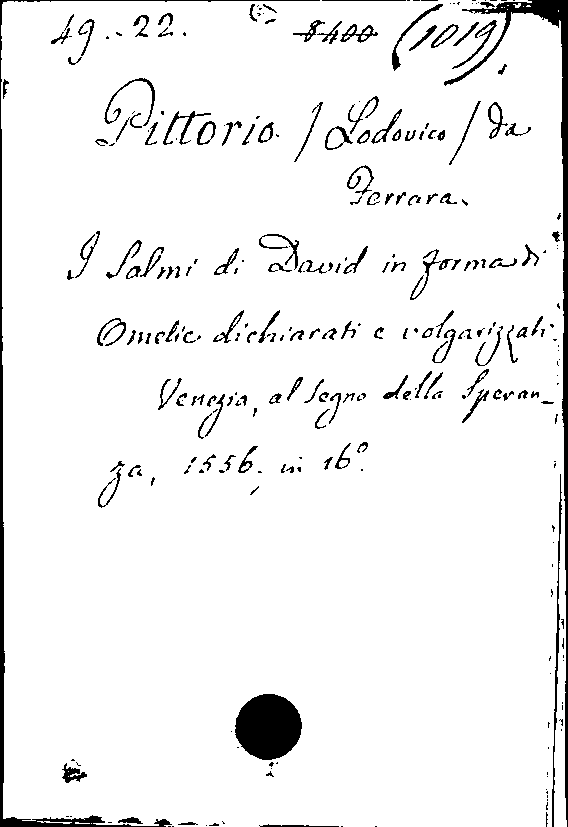 49..22. 8400 (1019).
Pittorio / Lodovico / da
Ferrara.
I Salmi di David in forma di
Omelie dichiarati e volgarizzati.
Venezia, al Segno della Speran-
za, 1556, in 16º.